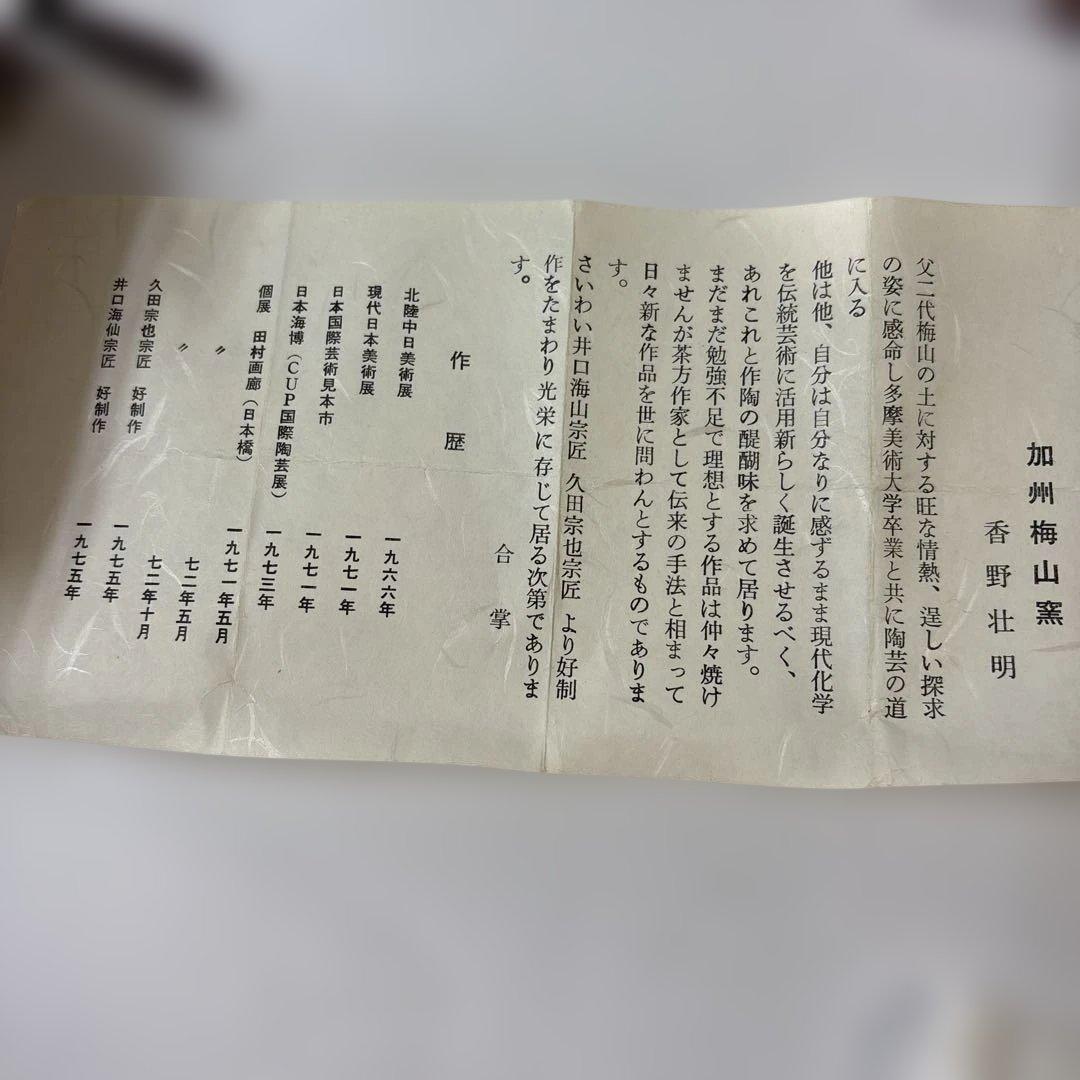 加州梅山窯
香野壮明
父二代梅山の土に対する旺な情熱、逞しい探求
の姿に感命し多摩美術大学卒業と共に陶芸の道
に入る
他は他、自分は自分なりに感ずるまま現代化学
を伝統芸術に活用新らしく誕生させるべく、
あれこれと作陶の醍醐味を求めて居ります。
まだまだ勉強不足で理想とする作品は仲々焼け
ませんが茶方作家として伝来の手法と相まって
日々新な作品を世に問わんとするものでありま
す。
さいわい井口海山宗匠 久田宗也宗匠 より好制
作をたまわり光栄に存じて居る次第でありま
す。
合掌
作歴
北陸中日美術展 一九六六年
現代日本美術展 一九七一年
日本国際芸術見本市 一九七一年
日本海博(CUP国際陶芸展) 一九七三年
個展 田村画廊(日本橋) 一九七一年五月
〃 七二年五月
〃 七二年十月
久田宗也宗匠 好制作 一九七五年
井口海仙宗匠 好制作 一九七五年